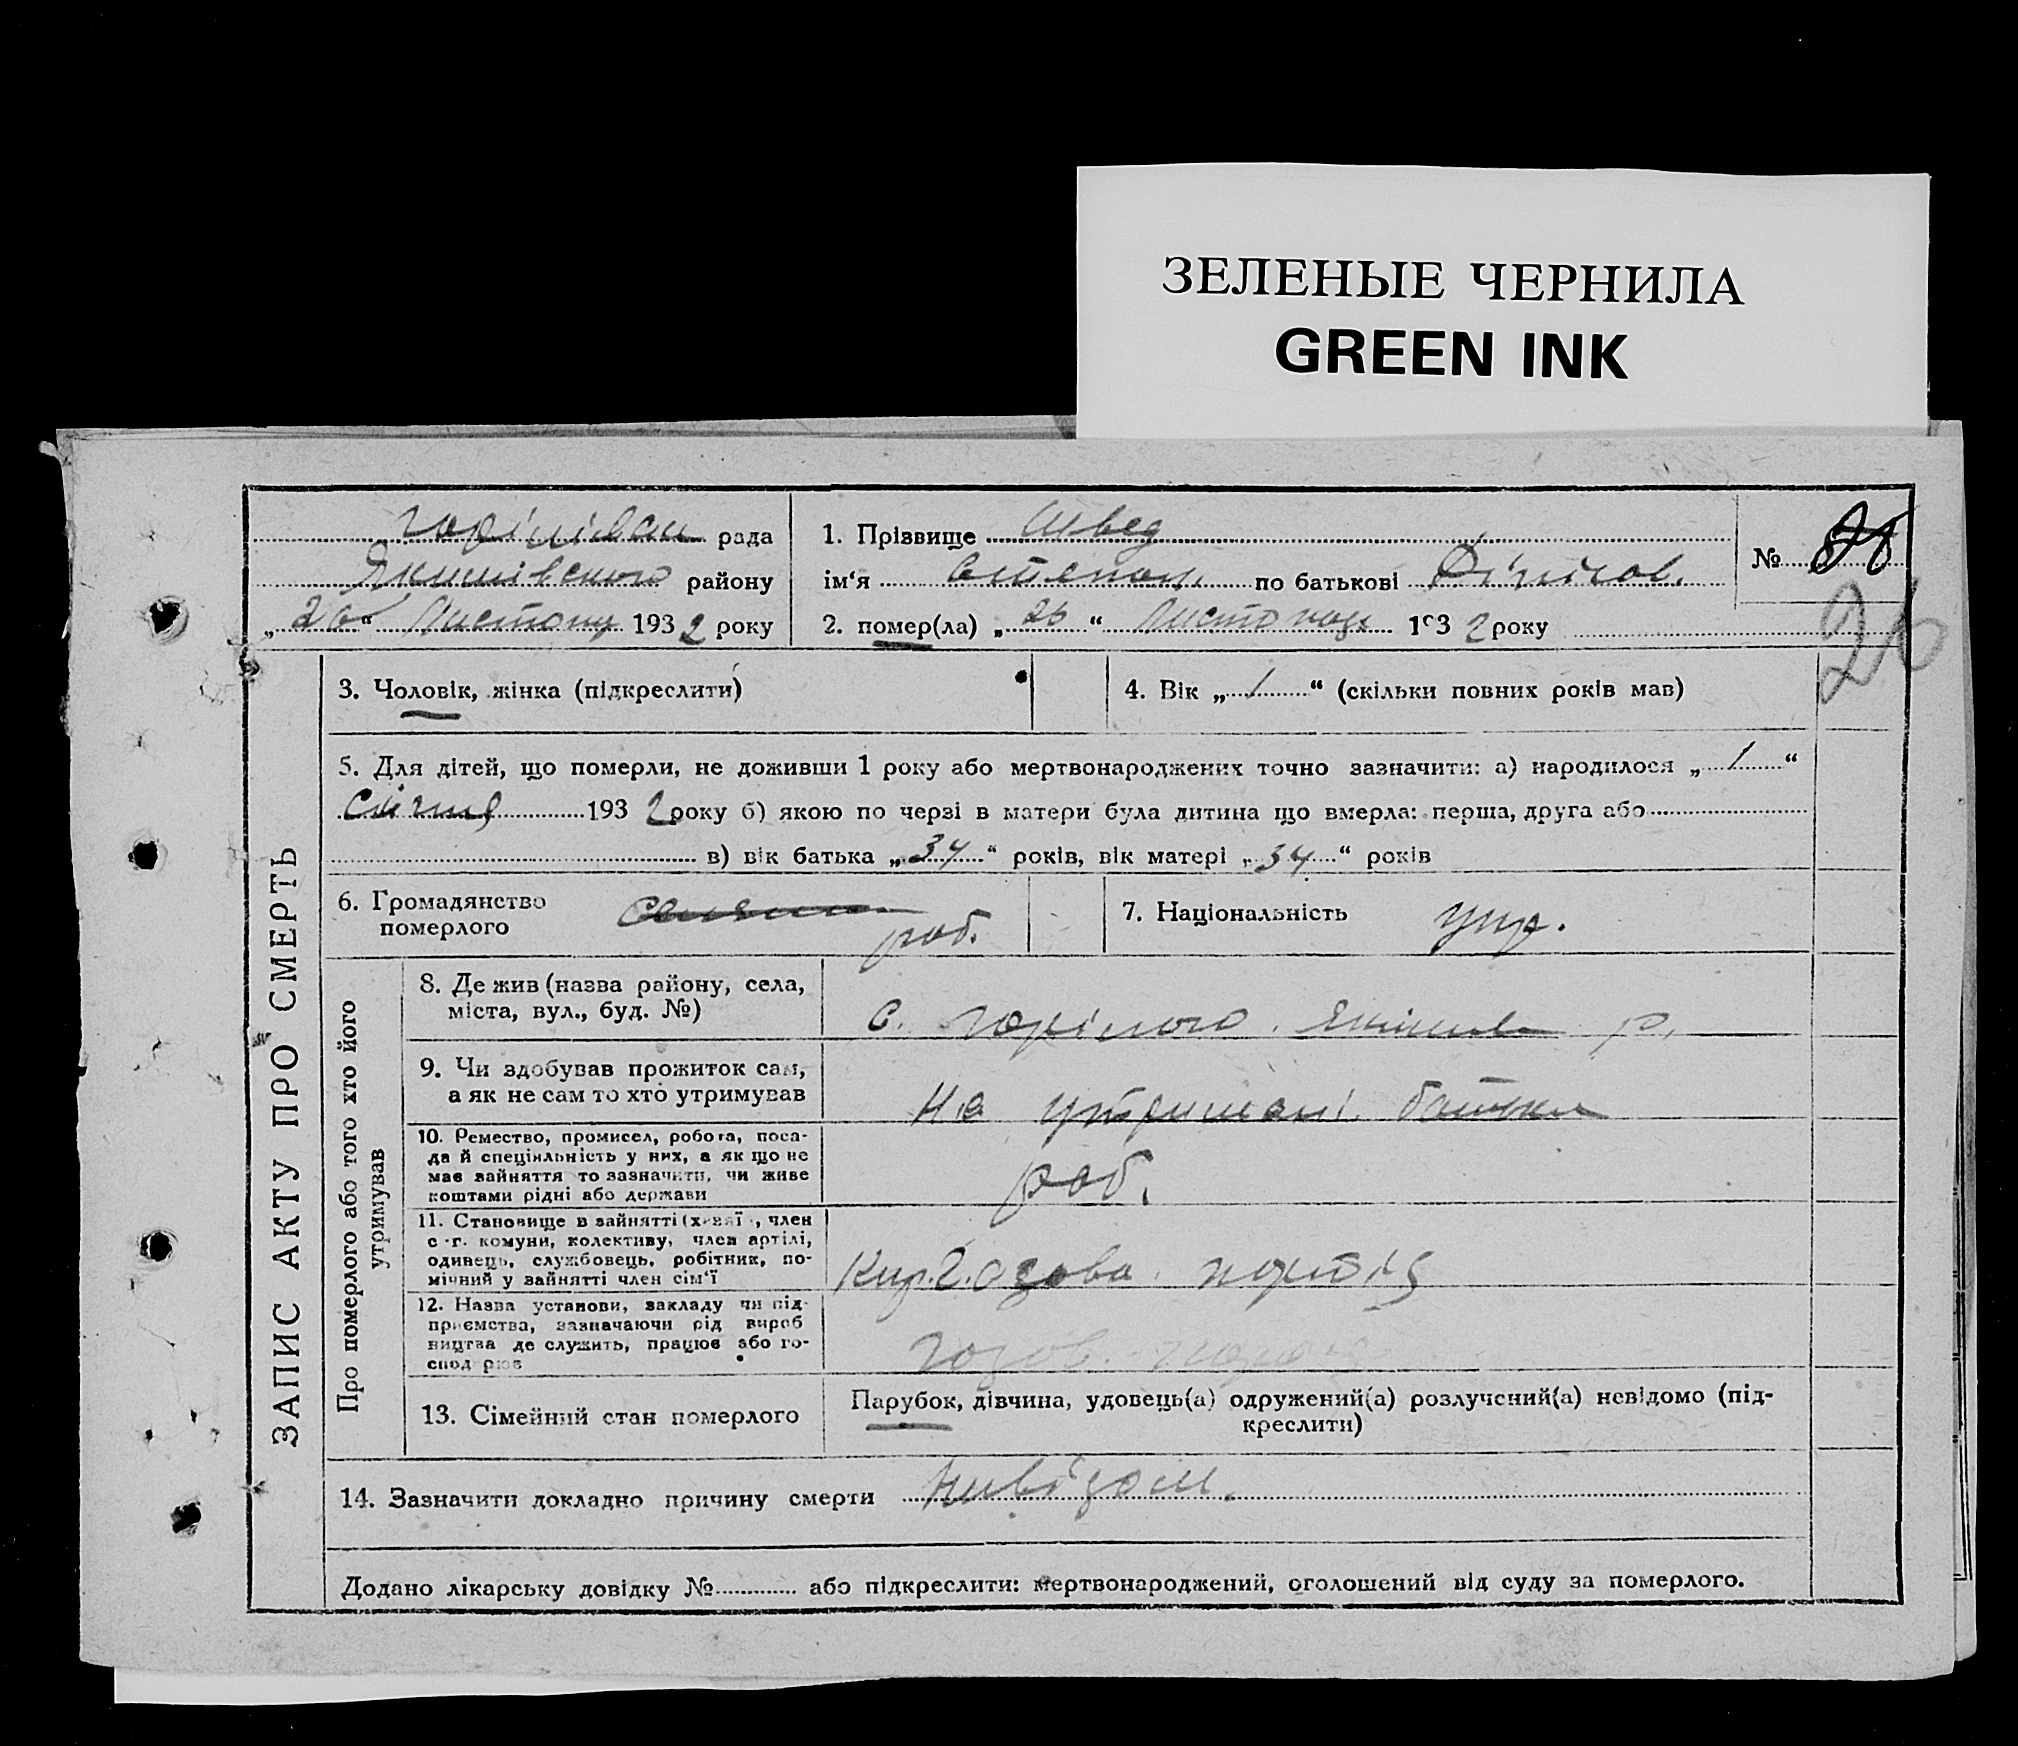 ЗЕЛЕНЫЕ ЧЕРНИЛА
GREEN INK
рада
району
„ 26 “ 1932 року
1. Прізвище Швед
ім‘я Степан. по батькові
2. помер(ла) „ 26 “ Листопада 1932 року
№
26
ЗАПИС АКТУ ПРО СМЕРТЬ
3. Чоловік, жінка (підкреслити)
4. Вік „ 1 “ (скільки повних років мав)
5. Для дітей, що померли, не доживши 1 року або мертвонароджених точно зазначити: а) народилося „ 1 “
січня 1932 року б) якою по черзі в матери була дитина що вмерла: перша, друга або
в) вік батька „ 34 “ років, вік матері „ 34 “ років
6. Громадянство
померлого
роб.
7. Національність укр.
Про померлого або того хто його
утримував
8. Де жив (назва району, села,
міста, вул., буд. №)
с. р.
9. Чи здобував прожиток сам,
а як не сам то хто утримував
На утримані батька
10. Ремество, промисел, робота, поса-
да й спеціяльність у них, а як що не
має зайняття то зазначити, чи живе
коштами рідні або держави
роб.
11. Становище в зайнятті (хазяї , член
с.-г. комуни, колективу, член артілі,
одинець, службовець, робітник, по-
мічний у зайнятті член сім‘ї
12. Назва установи, закладу чи під-
приємства, зазначаючи рід вироб
ництва де служить, працює або го-
сподарює
13. Сімейний стан померлого
Парубок, дівчина, удовець(а) одружений(а) розлучений(а) невідомо (під-
креслити)
14. Зазначити докладно причину смерти невідом.
Додано лікарську довідку № або підкреслити: мертвонароджений, оголошений від суду за померлого.